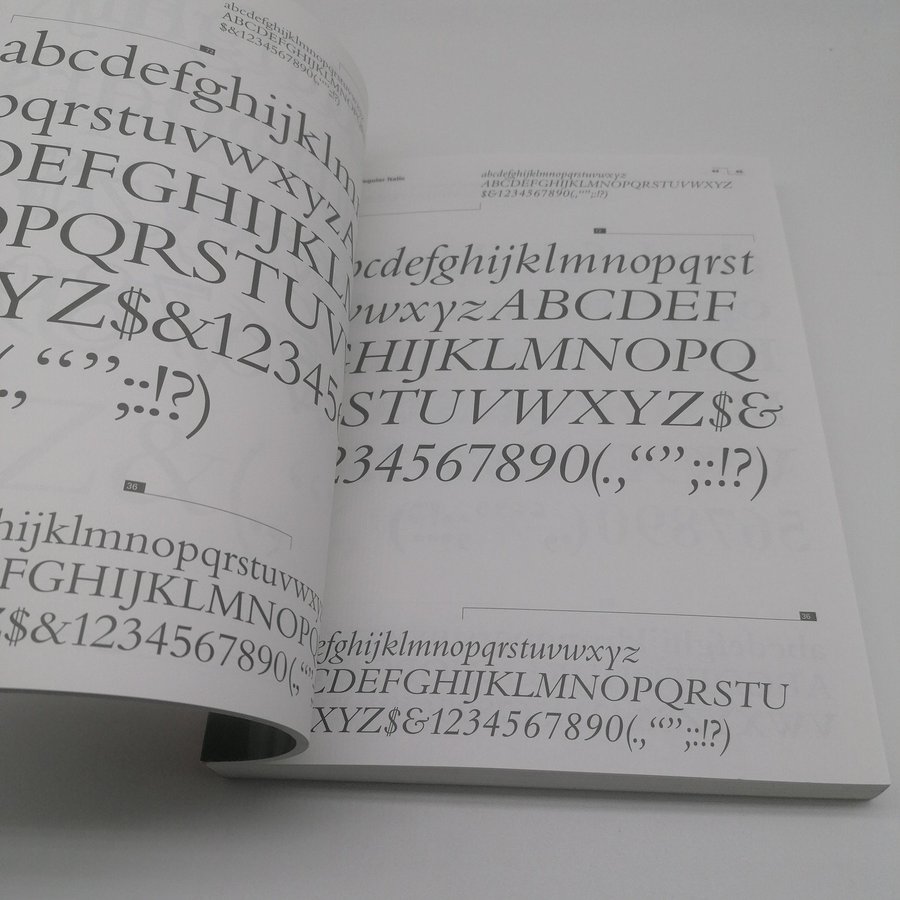 abcdefghijklmno
ABCDEFGHIJKLMNO
$&1234567890(.,“”;:!?)
abcdefghijklm
pqrstuvwxyzA
DEFGHIJKL
OPQRSTUV
YZ$&12345
.,“”;:!?)
36
hijklmnopqrstuvwx
FGHIJKLMNOPQ
Z$&1234567890(.,“
Regular Italic
abcdefghijklmnopqrstuvwxyz
ABCDEFGHIJKLMNOPQRSTUVWXYZ
$&1234567890(.,“”;:!?)
bcdefghijklmnopqrst
vwxyzABCDEF
HIJKLMNOPQ
STUVWXYZ$&
234567890(.,“”;:!?)
36
efghijklmnopqrstuvwxyz
CDEFGHIJKLMNOPQRSTU
XYZ$&1234567890(.,“”;:!?)